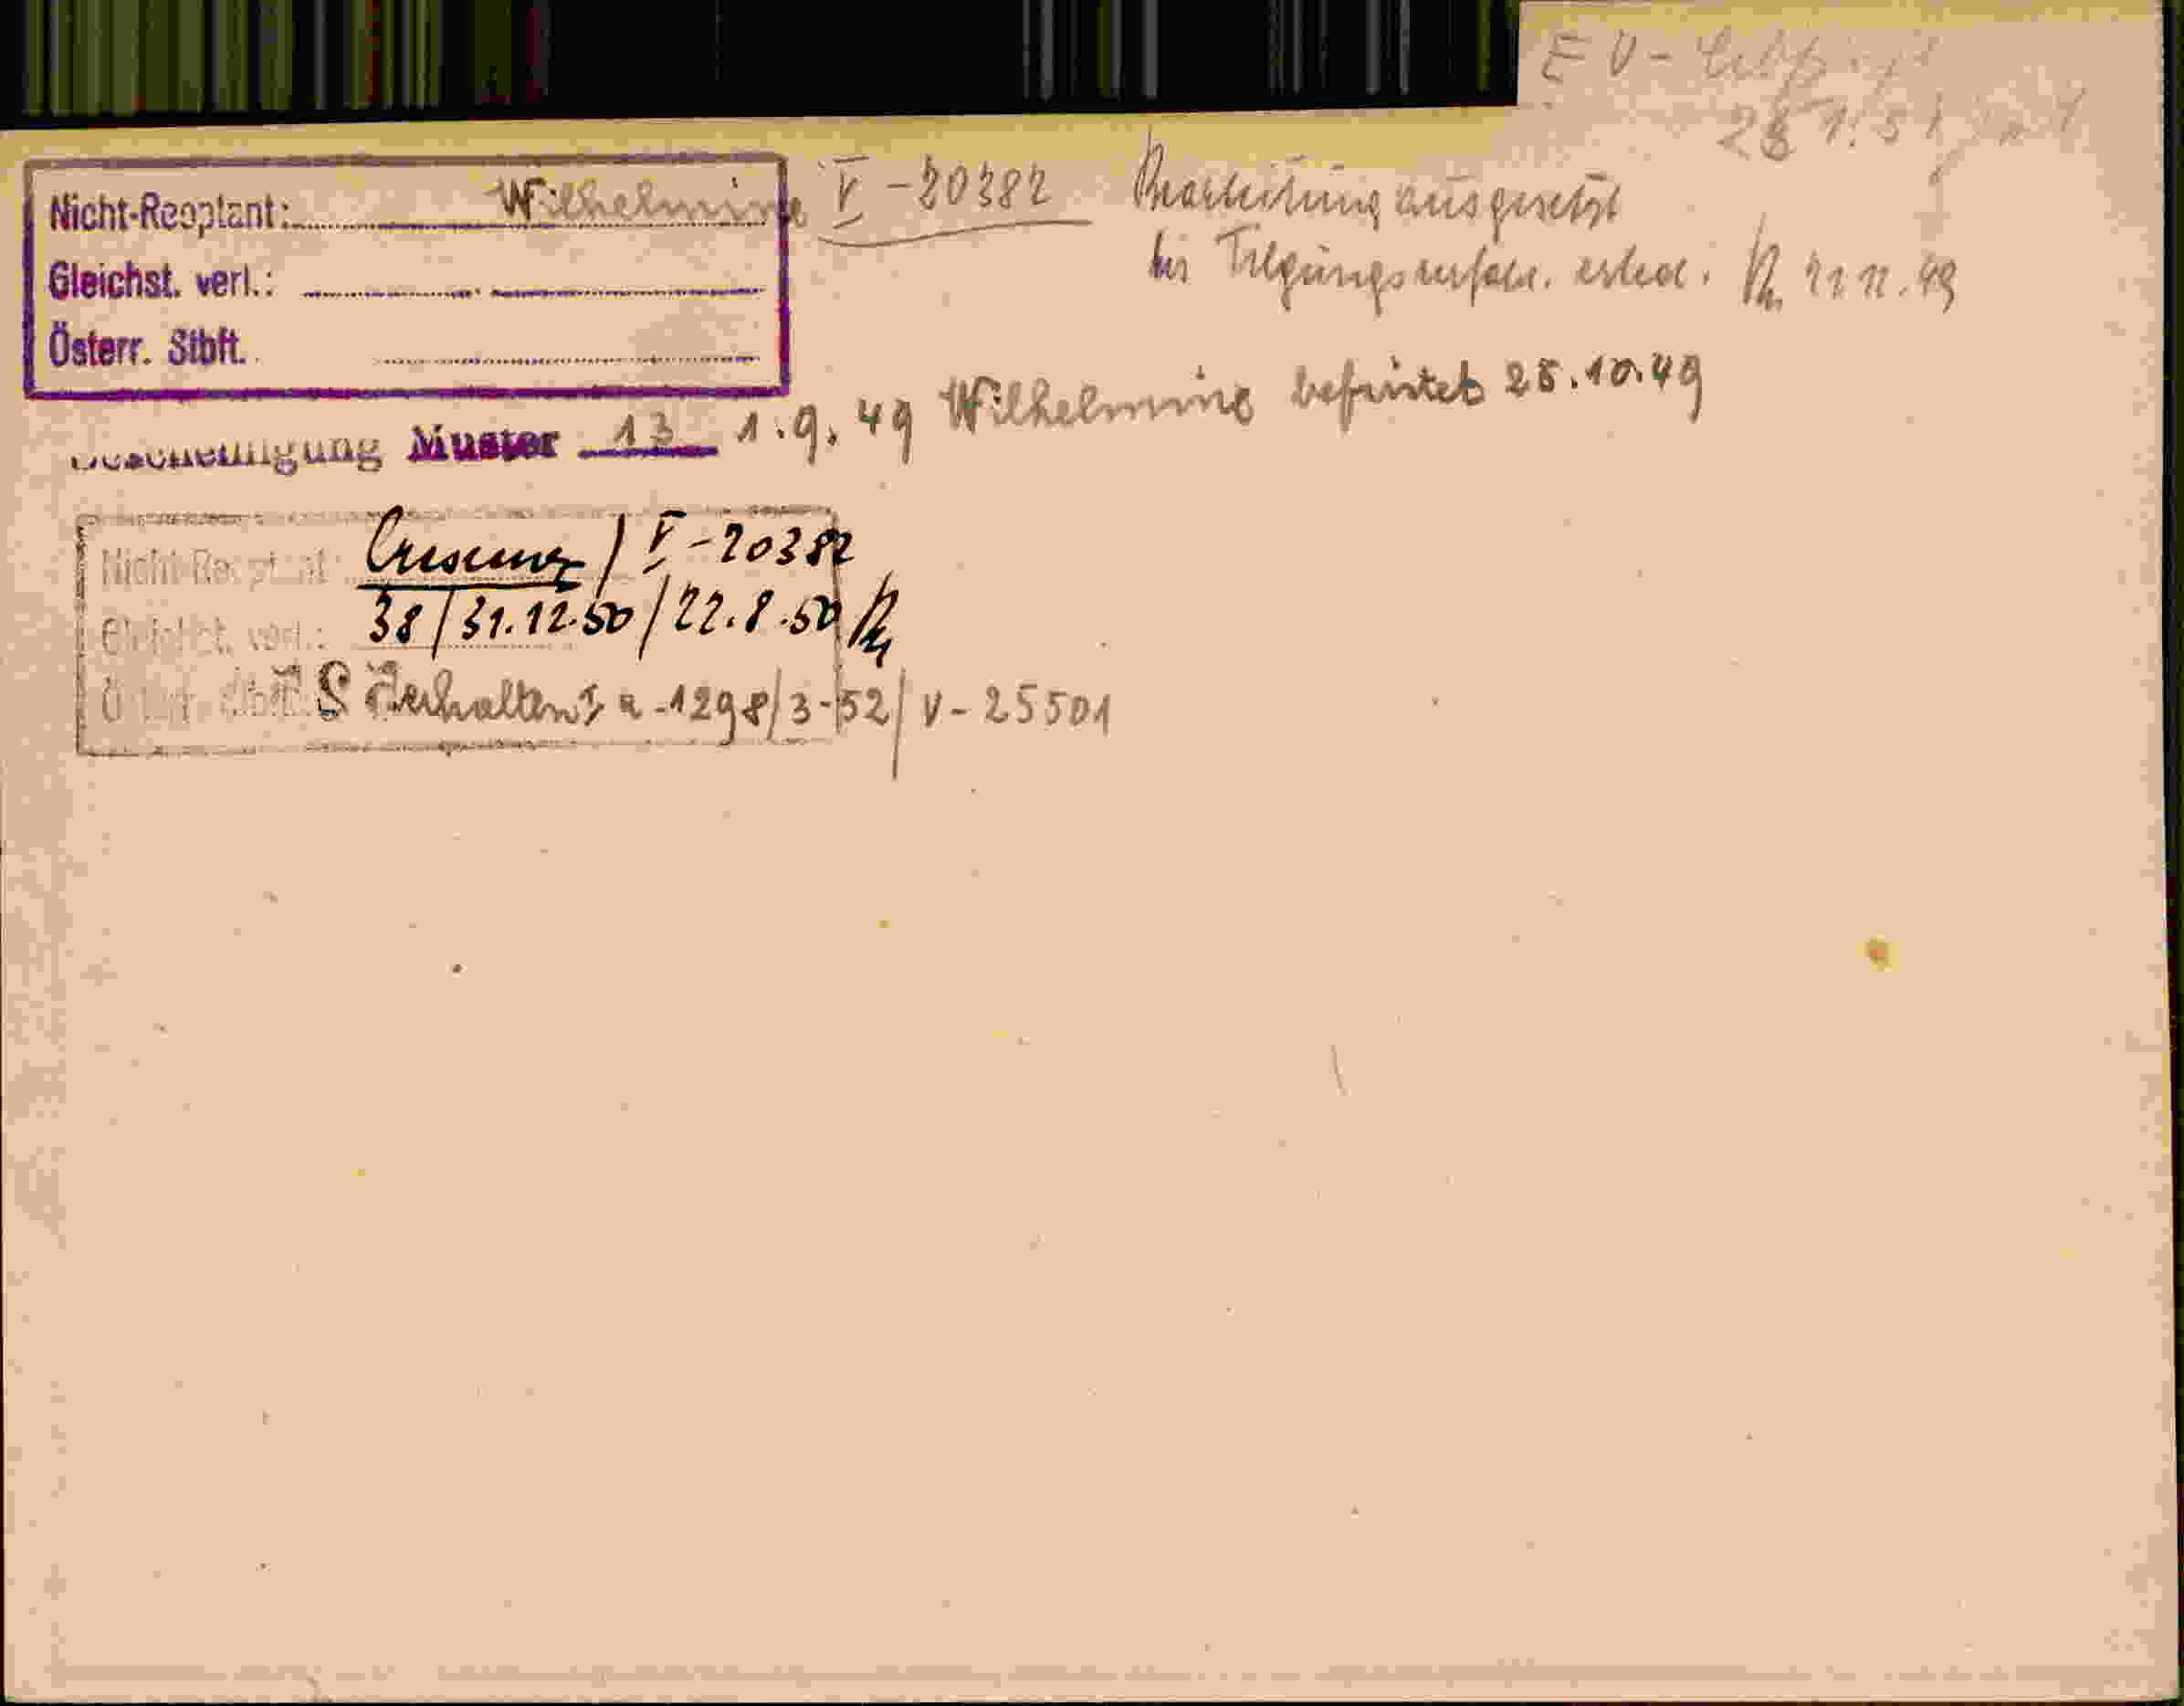 E V -
Nicht-Reoptant: Wilhelmine V - 20382 Bearbeitung ausgesetzt
bis Tilgungsverfahr. erled. 21.11.49
Gleichst. verl.:
Österr. Stbft.
Bescheinigung Muster 13 1.9.49 Wilhelmine befristet 28.10.49
Nicht-Reoptant: V - 20382
Gleichst. verl.: 38 / 31.12.50 / 22.8.50
Österr. Stbft. erhalten - 1298/3-52/ V - 25501